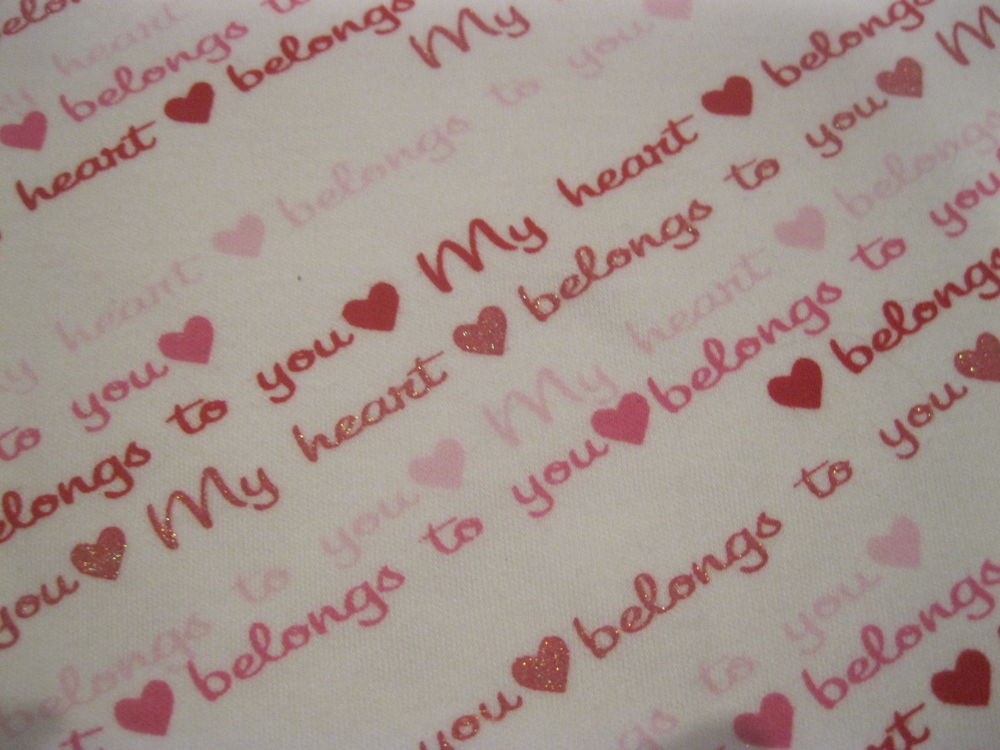 My heart
♥ belongs to
heart ♥ belongs
My
My heart ♥ belongs to you ♥
to you ♥
belongs to you ♥ My heart ♥ belongs
you ♥ My heart ♥ belongs to you ♥ M
belongs to you ♥ My heart ♥ belongs
t ♥ belongs to you ♥ belongs to you
♥ belongs
you ♥ belongs to you ♥
gs to you ♥
♥ belongs
art ♥